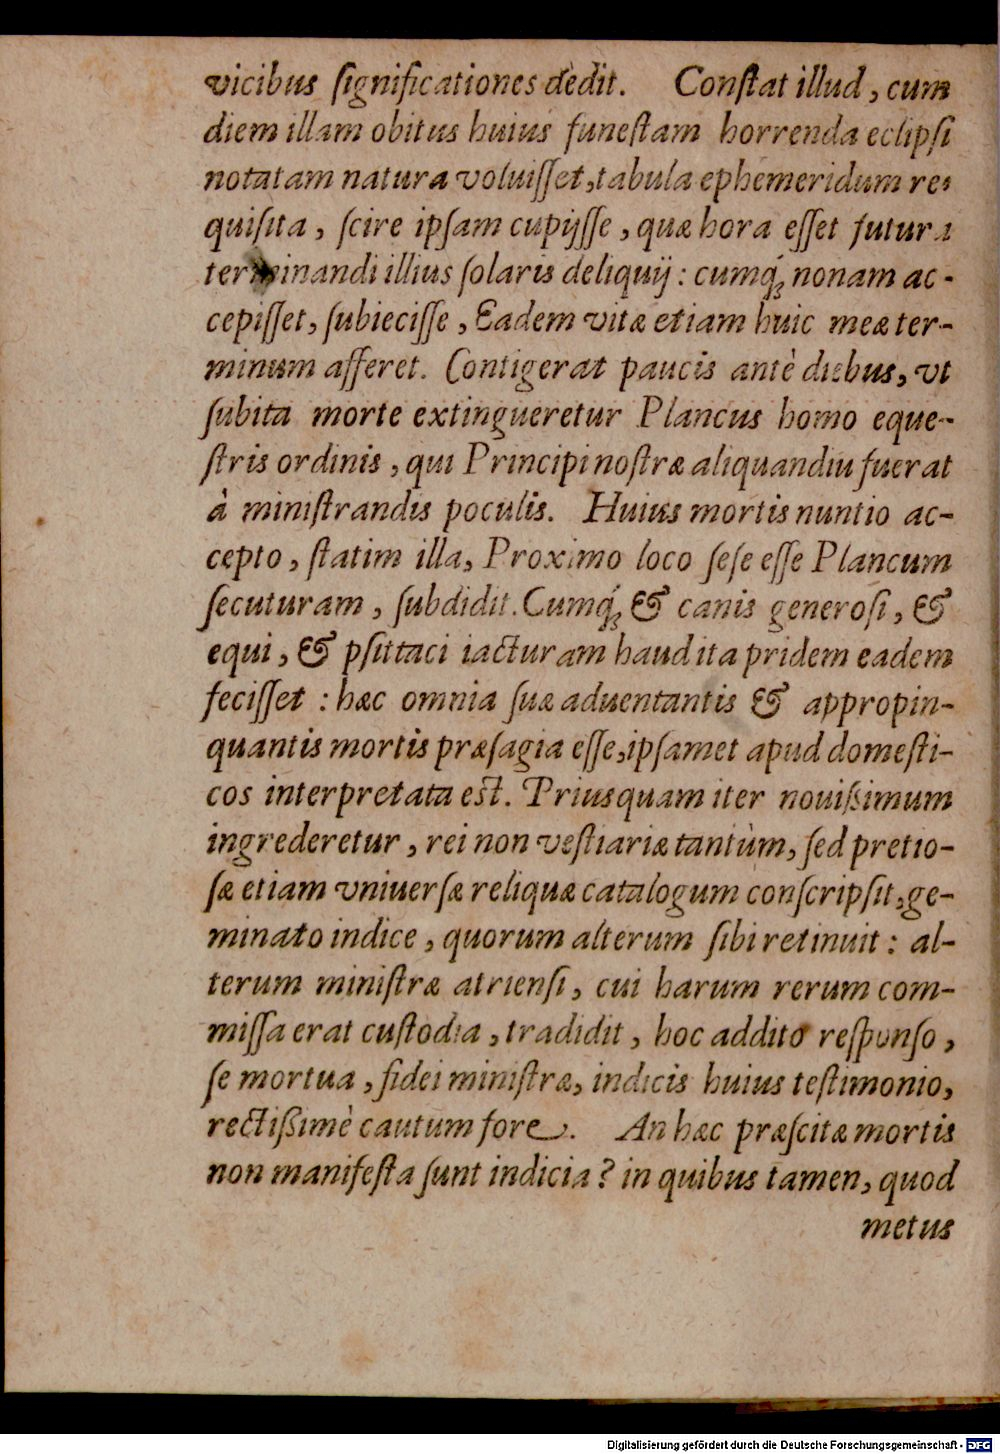 vicibus ſignificationes dèdit. Conſtat illud, cum
diem illam obitus huius funeſtam horrenda eclipſi
notatam natura voluiſſet, tabula ephemeridum re-
quiſita, ſcire ipſam cupijſſe, quæ hora eſſet futura
terminandi illius ſolaris deliquij: cumq́; nonam ac-
cepiſſet, ſubieciſſe, Eadem vitæ etiam huic meæ ter-
minum afferet. Contigerat paucis antè diebus, vt
ſubita morte extingueretur Plancus homo eque-
ſtris ordinis, qui Principi noſtræ aliquandiu fuerat
à miniſtrandis poculis. Huius mortis nuntio ac-
cepto, ſtatim illa, Proximo loco ſeſe eſſe Plancum
ſecuturam, ſubdidit. Cumq́; & canis generoſi, &
equi, & pſittaci iacturam haud ita pridem eadem
feciſſet: hæc omnia ſuæ aduentantis & appropin-
quantis mortis præſagia eſſe, ipſamet apud domeſti-
cos interpretata est. Priusquam iter nouißimum
ingrederetur, rei non veſtiariæ tantùm, ſed pretio-
ſæ etiam vniuerſæ reliquæ catalogum conſcripſit, ge-
minato indice, quorum alterum ſibi retinuit: al-
terum miniſtræ atrienſi, cui harum rerum com-
miſſa erat cuſtodia, tradidit, hoc addito reſponſo,
ſe mortua, fidei miniſtræ, indicis huius teſtimonio,
rectißimè cautum fore. An hæc præſcitæ mortis
non manifeſta ſunt indicia? in quibus tamen, quod
metus
Digitalisierung gefördert durch die Deutsche Forschungsgemeinschaft - DFG